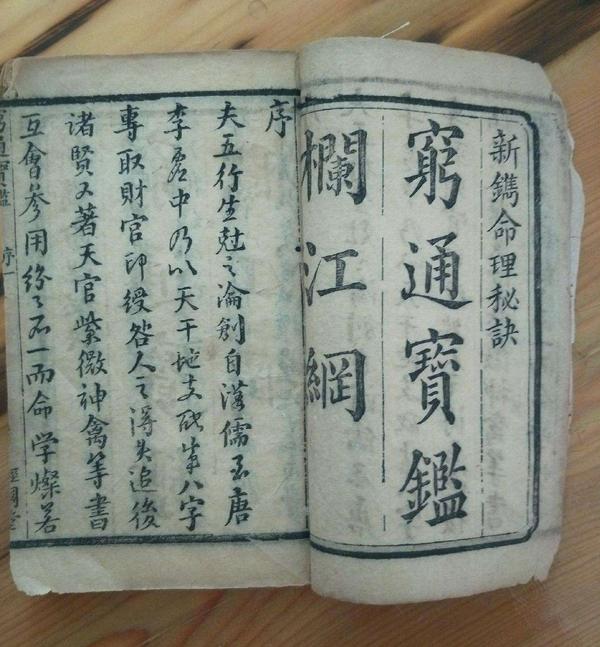 新鐫命理秘訣
窮通寶鑑
欄江網
序
夫五行生尅之論創自漢儒至唐
李虛中乃以天干地支配成八字
專取財官印綬咎人之得失追後
諸賢又著天官紫微神禽等書
互會參用紛々不一而命學燦若
窮通寶鑑
序一